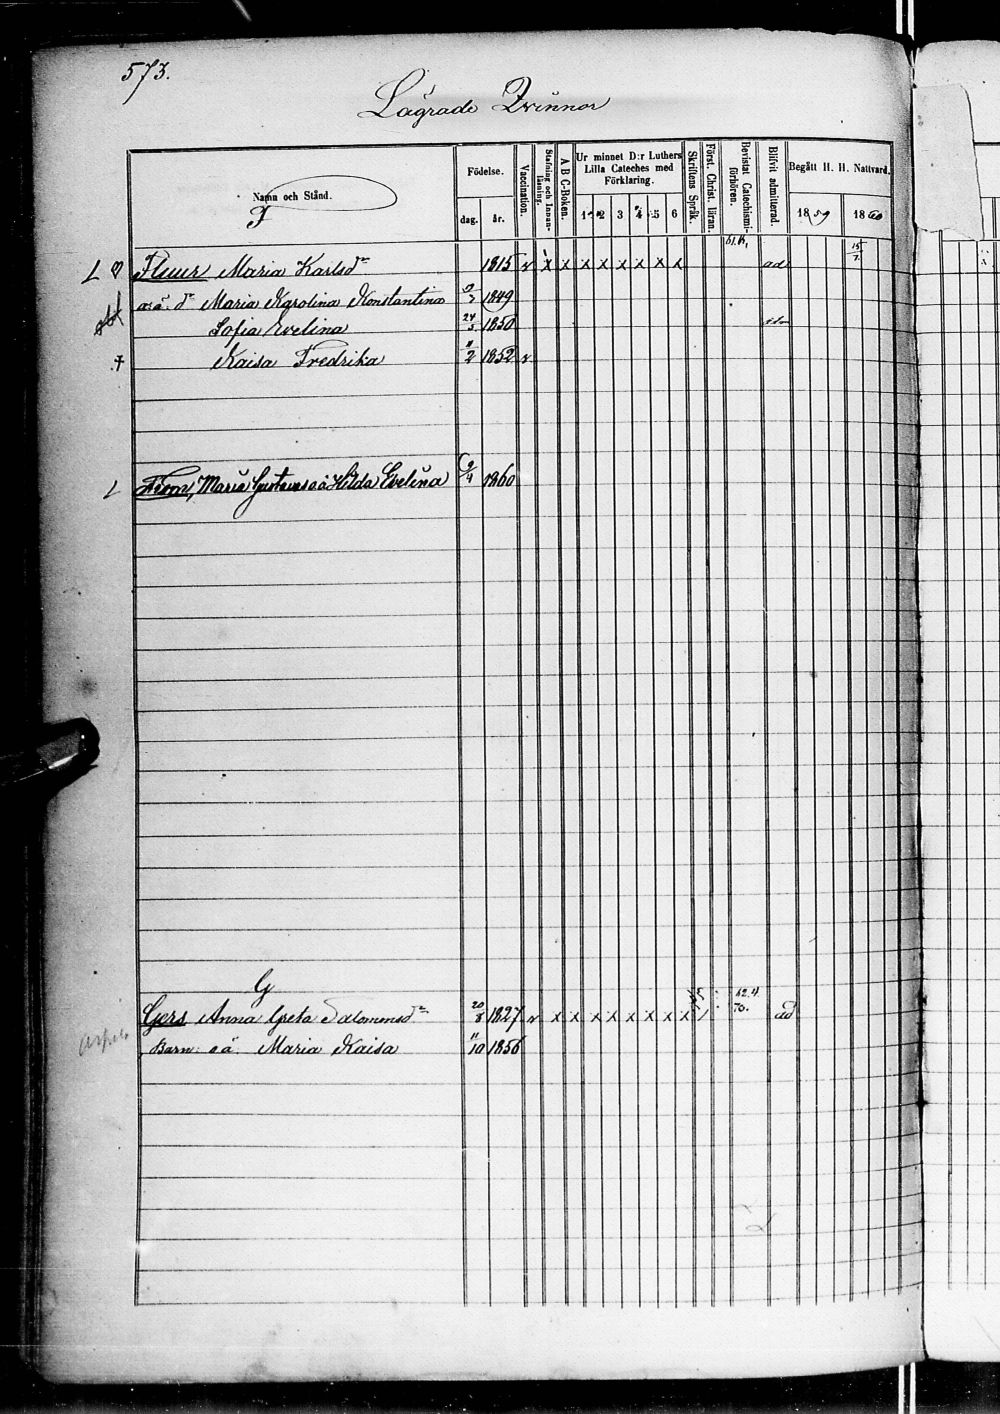 573.
Lägrade Qvinnor
Namn och Stånd.
F
Födelse.
dag.
år.
Vaccination.
Stafning och Innan-läsning.
A B C-Boken.
Ur minnet D:r Luthers
Lilla Cateches med
Förklaring.
1 2 3 4 5 6
Skriftens Språk.
Först. Christ. läran.
Bevistat Catechismi-förhören.
Blifvit admitterad.
Begått H. H. Nattvard.
1859 1860
L Fleur Maria Karlsdr 1815 v x x x x x x x x ad 15/7
o.ä. dr Maria Karolina Konstantina 1849
Sofia Evelina 24/5 1850
† Kaisa Fredrika 11/2 1852 v
L Maria Gustava o ä Hilda Evelina 9/4 1860
G
Gers Anna Greta Salomonsdr 20/8 1827 v x x x x x x x x ad
Barn o ä. Maria Kaisa 11/10 1856